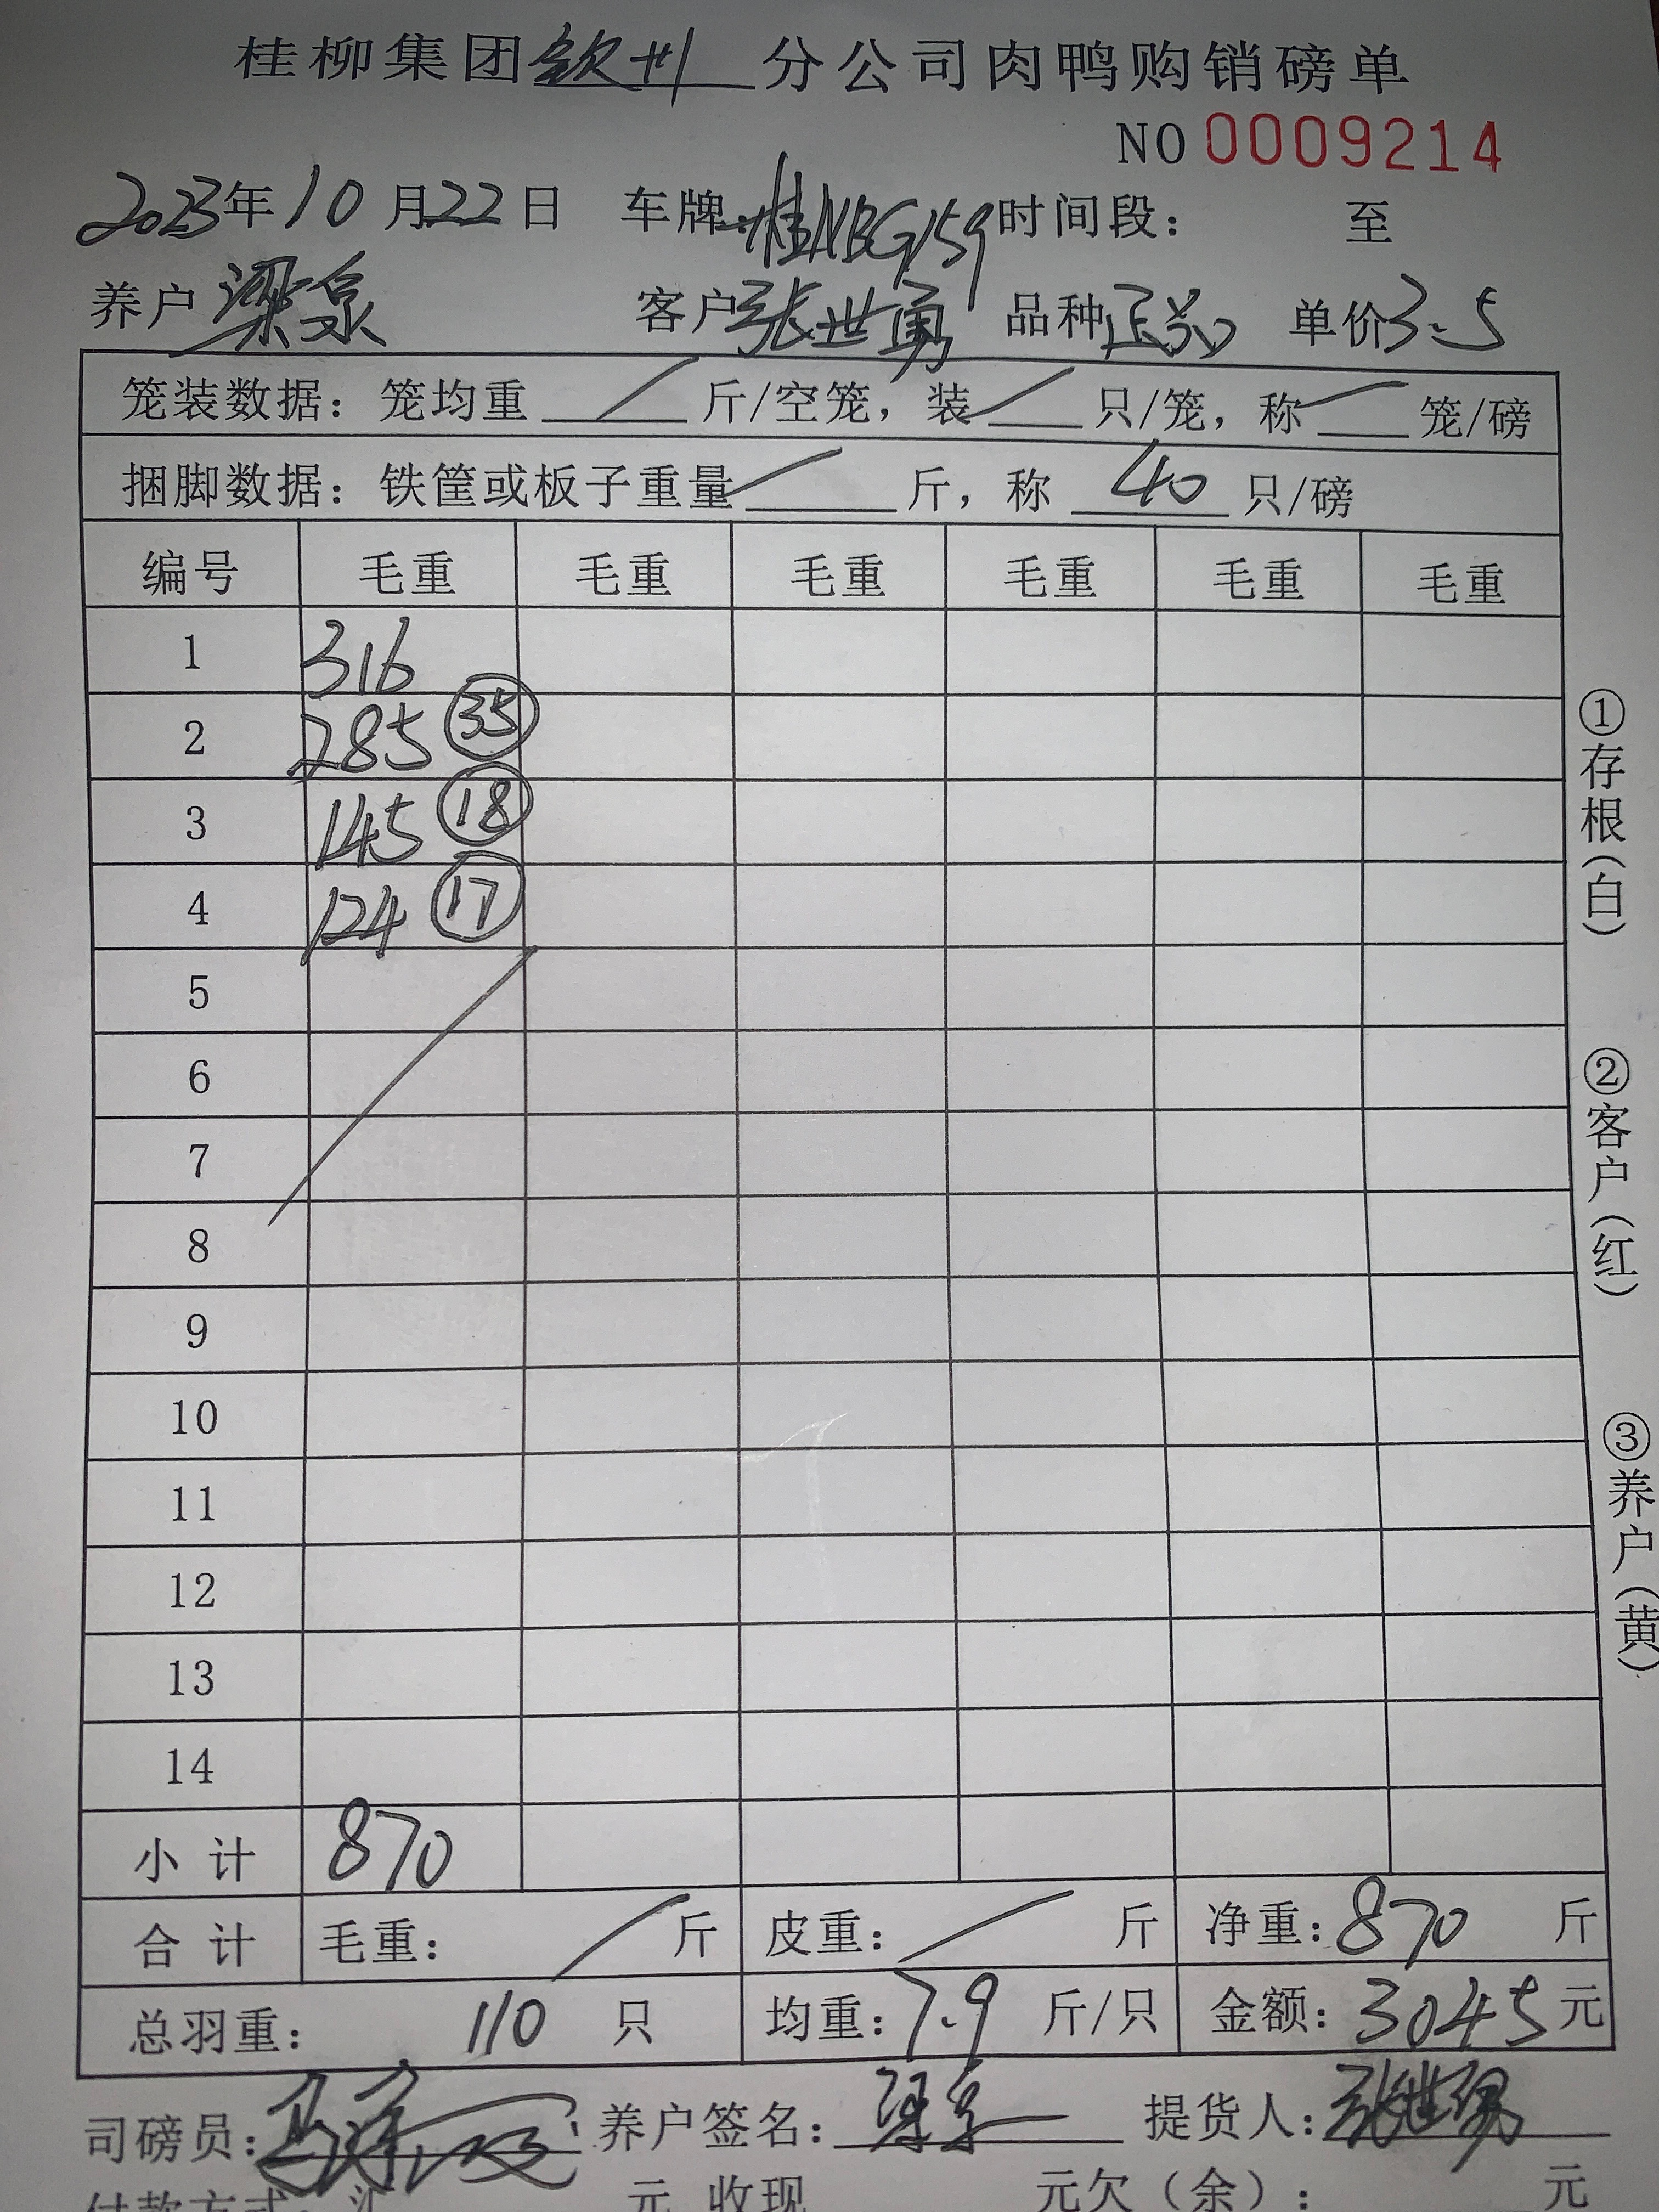 桂柳集团钦州分公司肉鸭购销磅单
NO 0009214
2023年10月22日 车牌:桂NBG159 时间段: 至
养户 梁泉 客户 张世勇 品种 单价3.5
笼装数据: 笼均重 / 斤/空笼, 装 / 只/笼, 称 / 笼/磅
捆脚数据: 铁筐或板子重量 / 斤, 称 40 只/磅
编号 毛重 毛重 毛重 毛重 毛重 毛重
1 316
2 285 ㉟
3 145 ⑱
4 124 ⑰
5
6
7
8
9
10
11
12
13
14
小计 870
合计 毛重: / 斤 皮重: / 斤 净重: 870 斤
总羽重: 110 只 均重: 7.9 斤/只 金额: 3045 元
司磅员: 养户签名: 梁泉 提货人: 张世勇
付款方式: 汇 元 收现 元欠(余): 元
①存根(白)
②客户(红)
③养户(黄)